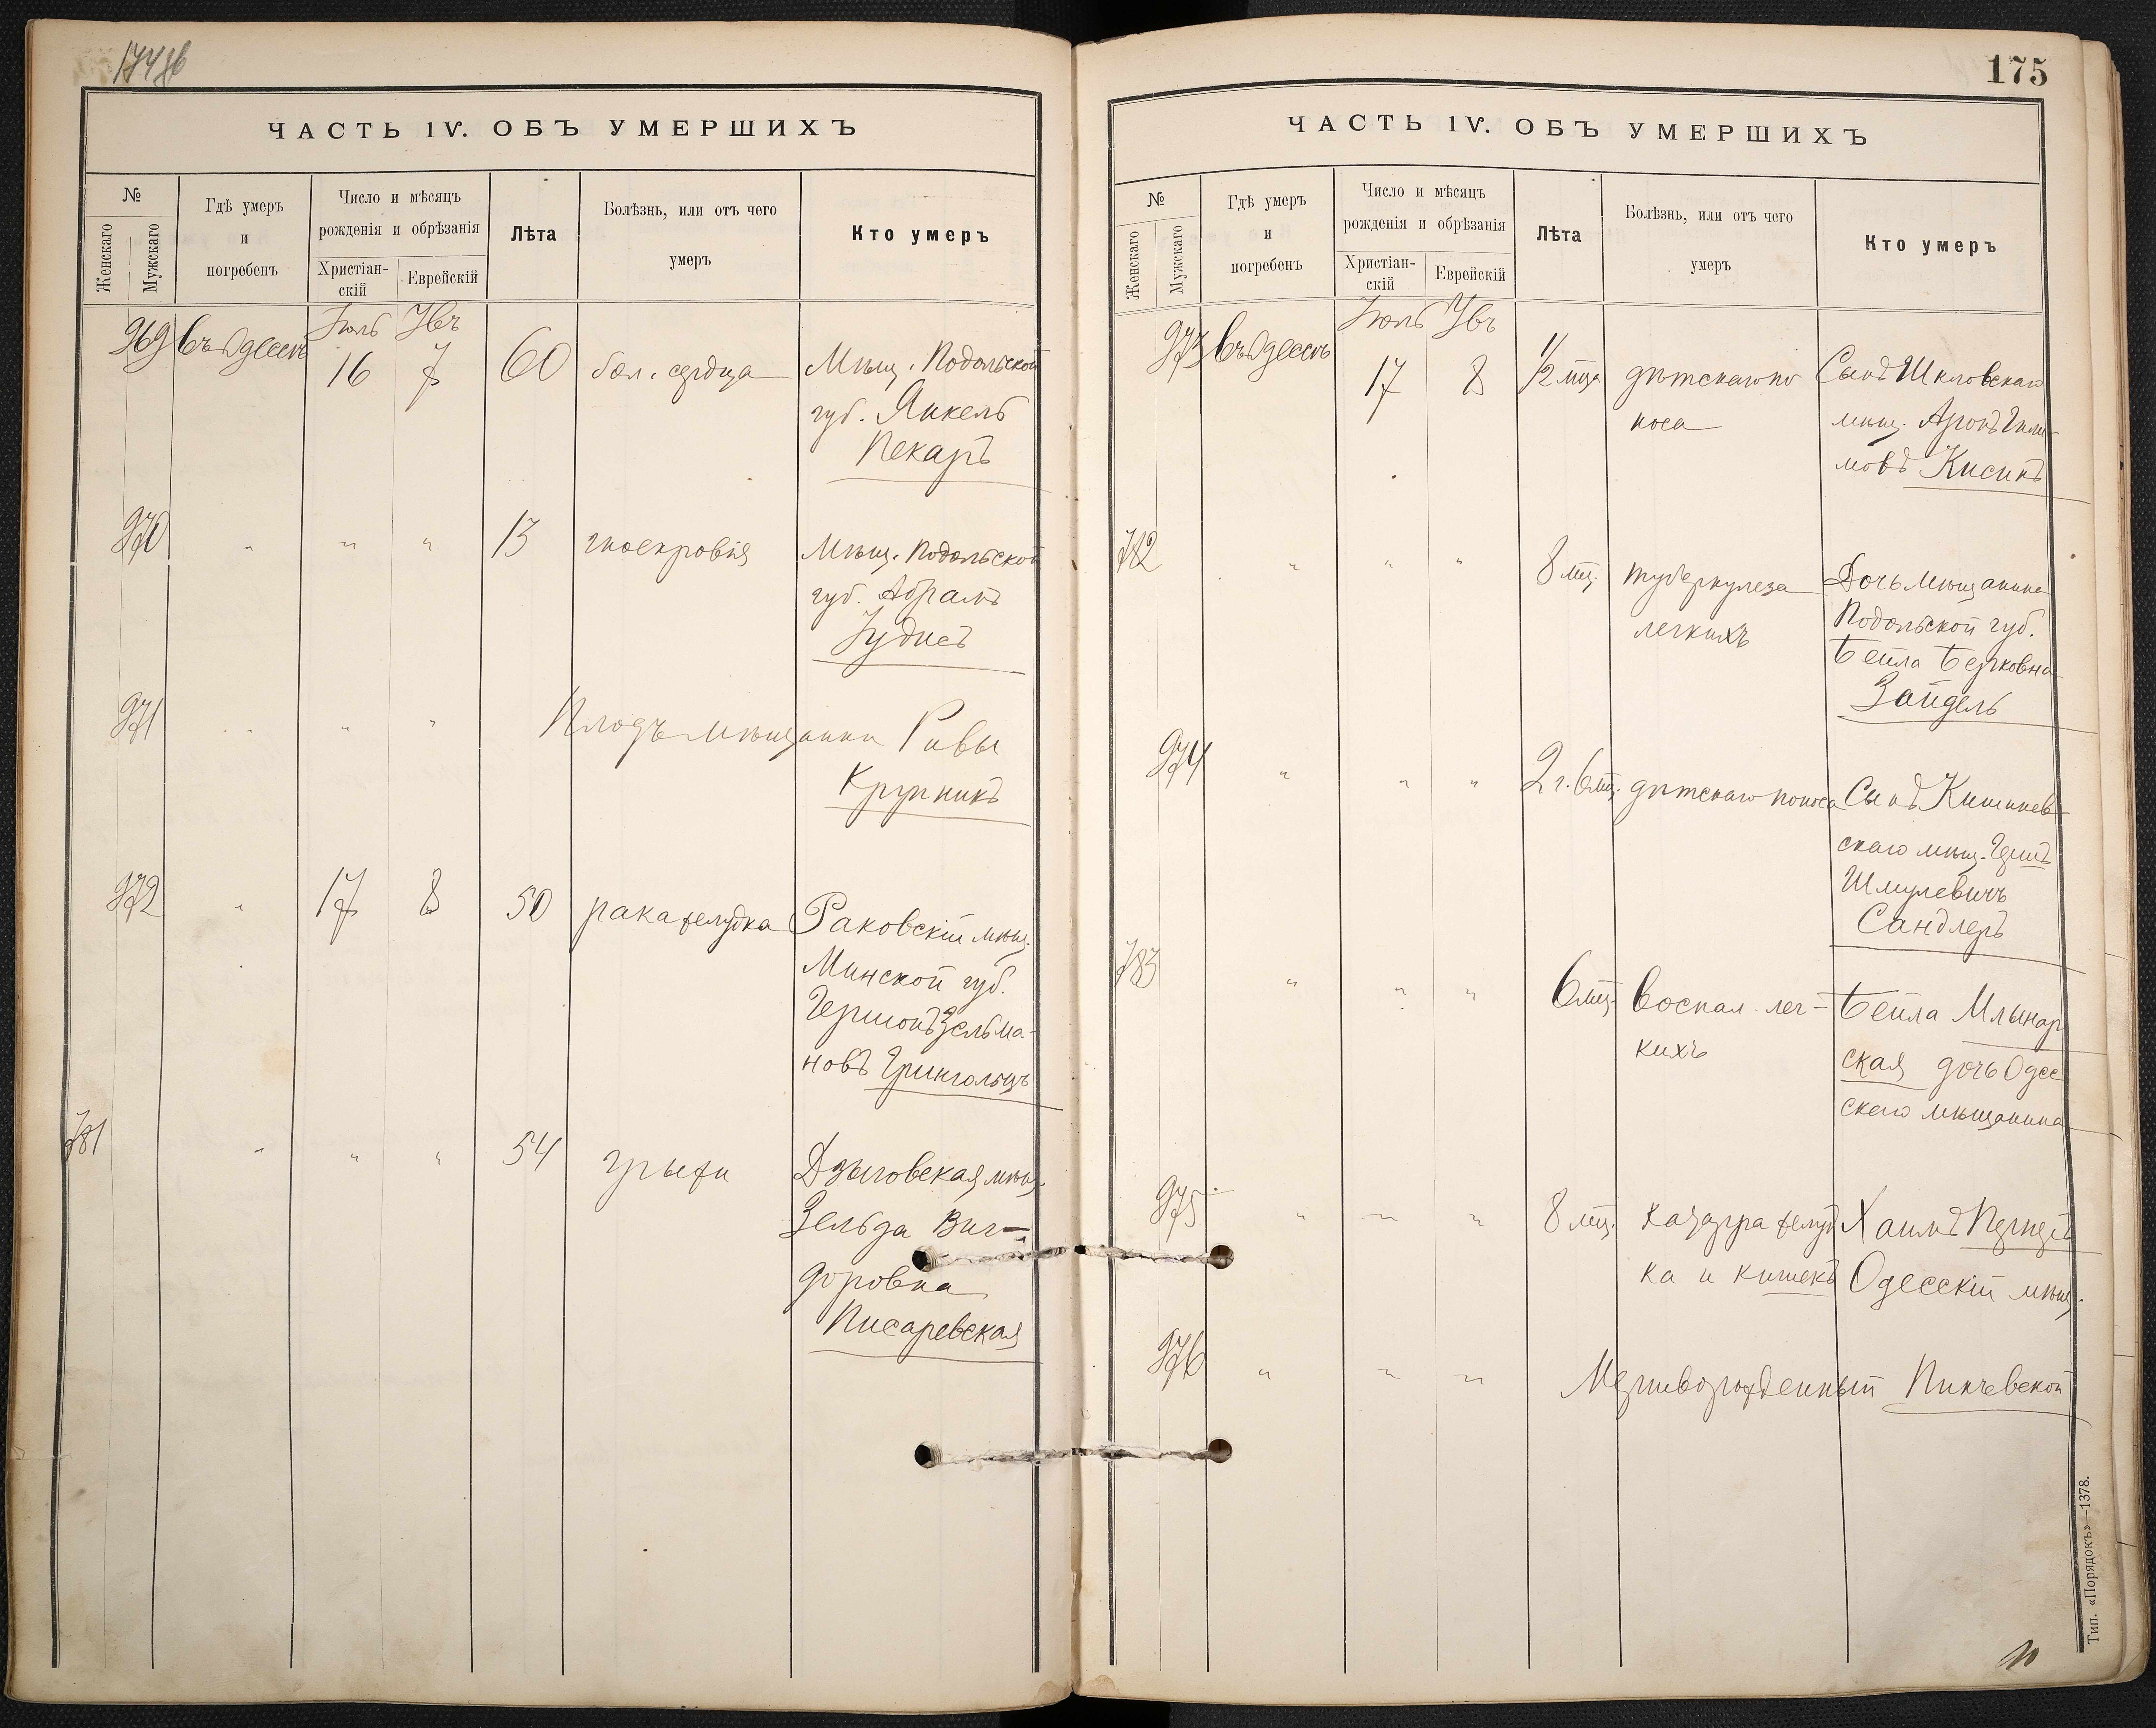 174 об
ЧАСТЬ IV. ОБЪ УМЕРШИХЪ
№
Женскаго
Мужскаго
Гдѣ умеръ
и
погребенъ
Число и мѣсяцъ
рожденія и обрѣзанія
Христіан-
скій
Еврейскій
Лѣта
Болѣзнь, или отъ чего
умеръ
Кто умеръ
Іюль
969 въ Одессѣ 16 7 60 бол. сердца Мѣщ. Подольской
губ. Янкель
Пекаръ
970 " " " 13 гноекровія Мѣщ. Подольской
губ. Абрамъ
971 " " " Плодъ мѣщанки Ривы
Крупникъ
972 " 17 8 50 рака желудка Раковскій мѣщ.
Минской губ.
Гершонъ Зельма-
новъ Грингольцъ
781 " " " 54 грыжи Дзыговская мѣщ.
Зельда Виг-
доровна
Писаревская
175
ЧАСТЬ IV. ОБЪ УМЕРШИХЪ
№
Женскаго
Мужскаго
Гдѣ умеръ
и
погребенъ
Число и мѣсяцъ
рожденія и обрѣзанія
Христіан-
скій
Еврейскій
Лѣта
Болѣзнь, или отъ чего
умеръ
Кто умеръ
Іюль
973 въ Одессѣ 17 8 1/2 мца дѣтскаго по Сынъ Шкловскаго
носа мѣщ. Аронъ
мовъ Кисинъ
782 " " " 8 мц. туберкулеза Дочь мѣщанина
легкихъ Подольской губ.
Бейла Берковна
Зайдель
974 " " " 2 г. 6 мц. дѣтскаго поноса Сынъ Кишинев-
скаго мѣщ.
Шмулевичъ
Сандлеръ
783 " " " 6 мц. воспал. лег- Бейла Млынар
кихъ ская дочь Одес
скаго мѣщанина
975 " " " 8 мц. катарра желуд Хаимъ
ка и кишекъ Одесскій мѣщ.
976 " " " Мертворожденный Пикчевской
Тип. «Порядокъ»—1378.